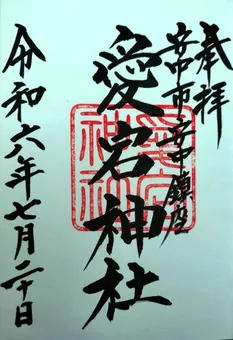 奉拝
安中市安中鎮座
愛宕神社
愛宕神社
令和六年七月二十日